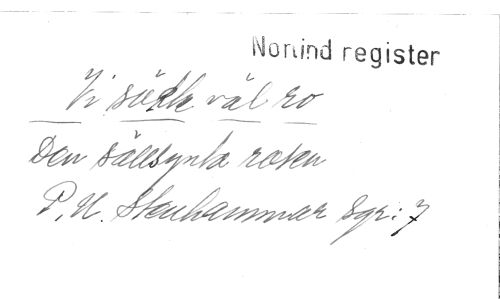 Norlind register
Vi sökte väl ro
Den sällsynta rosen
P. U. Stenhammar sgr: 7